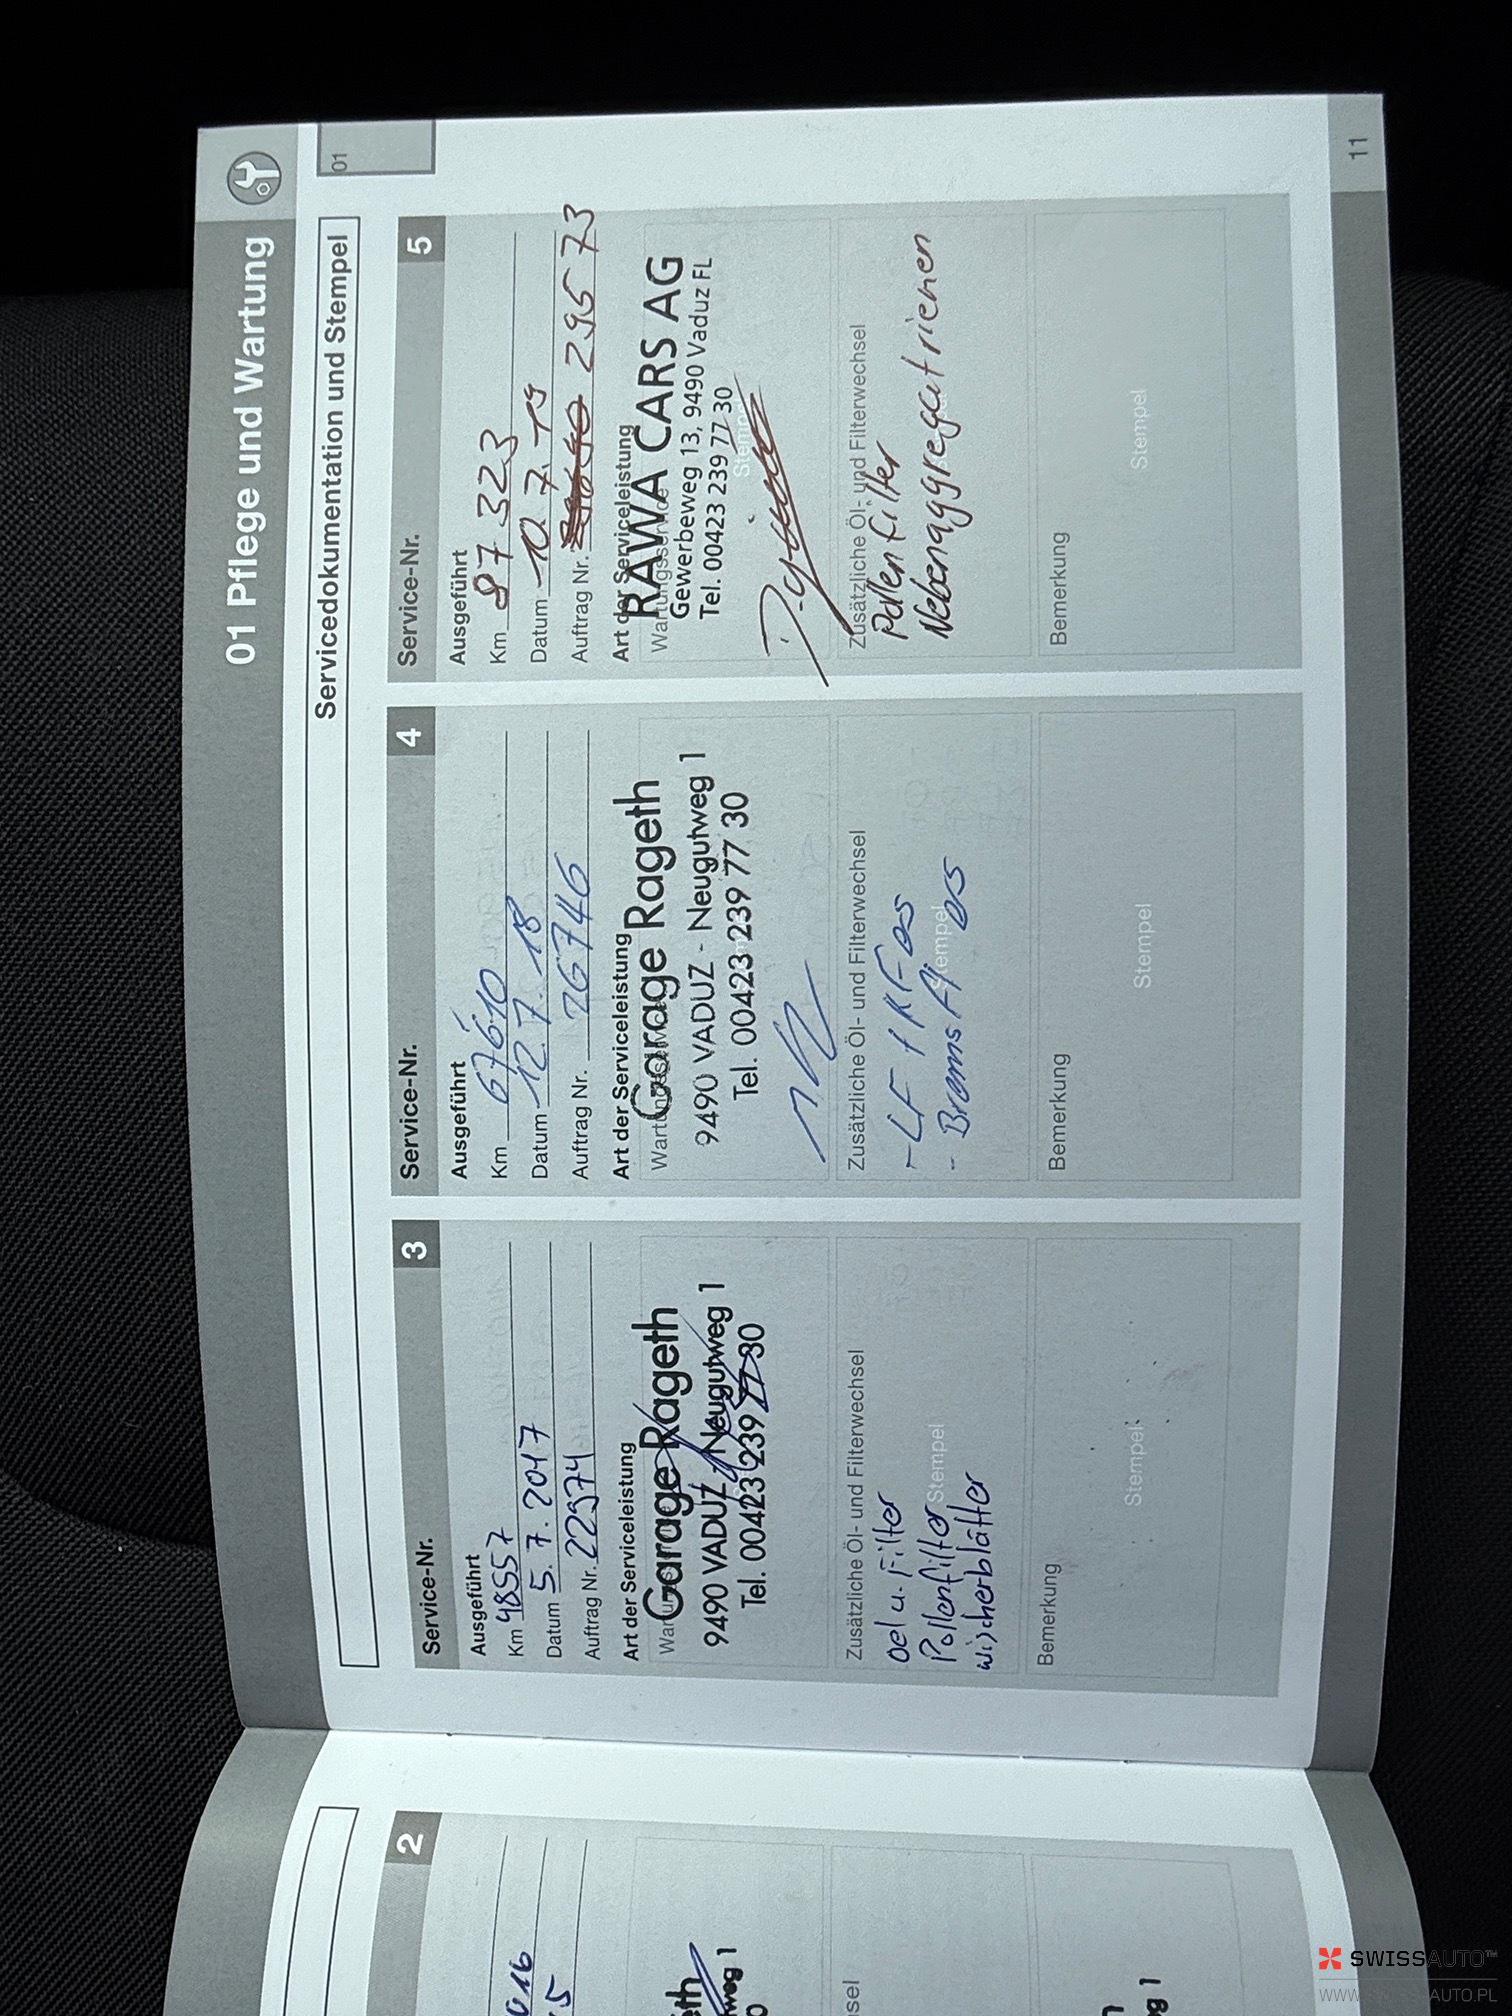 01 Pflege und Wartung
Servicedokumentation und Stempel
01
2
016
5
eth
weg 1
0
sel
g 1
Service-Nr.
3
Ausgeführt
Km 48557
Datum 5.7.2017
Auftrag Nr. 22974
Art der Serviceleistung
Garage Rageth
9490 VADUZ - Neugutweg 1
Tel. 00423 239 77 30
Zusätzliche Öl- und Filterwechsel
Oel u. Filter
Pollenfilter
Stempel
Wischerblätter
Bemerkung
Stempel
Service-Nr.
4
Ausgeführt
Km 67610
Datum 12.7.18
Auftrag Nr. 26746
Art der Serviceleistung
Garage Rageth
9490 VADUZ - Neugutweg 1
Tel. 00423 239 77 30
Zusätzliche Öl- und Filterwechsel
- LF
Stempel
- Bremsfl
Bemerkung
Stempel
Service-Nr.
5
Ausgeführt
Km 87323
Datum 10.7.19
Auftrag Nr. 29573
Art der Serviceleistung
Wartungsservice
RAWA CARS AG
Gewerbeweg 13, 9490 Vaduz FL
Tel. 00423 239 77 30
Zusätzliche Öl- und Filterwechsel
Pollenfilter
Nebenaggregatrienen
Bemerkung
Stempel
11
SWISSAUTO™
WWW.SWISSAUTO.PL